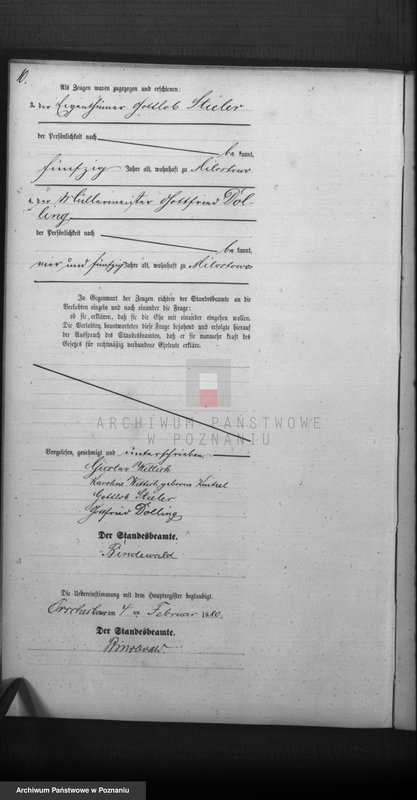 10.
Als Zeugen waren zugezogen und erschienen:
3. der Eigenthümer Gottlob Stieler
der Persönlichkeit nach
be kannt,
fünfzig Jahre alt, wohnhaft zu Milostowo
4. der Müllermeister Gottfried Döl-
ling
der Persönlichkeit nach
be kannt,
vier und fünfzig Jahre alt, wohnhaft zu Milostowo
In Gegenwart der Zeugen richtete der Standesbeamte an die
Verlobten einzeln und nach einander die Frage:
ob sie erklären, daß sie die Ehe mit einander eingehen wollen.
Die Verlobten beantworteten diese Frage bejahend und erfolgte hierauf
der Ausspruch des Standesbeamten, daß er sie nunmehr kraft des
Gesetzes für rechtmäßig verbundene Eheleute erkläre.
ARCHIWUM PAŃSTWOWE
W POZNANIU
Vorgelesen, genehmigt und unterschrieben.
Gustav Wittich
Karoline Wittich geborene
Gottlob Stieler
Gottfried Dölling
Der Standesbeamte.
Bindewald
Die Uebereinstimmung mit dem Hauptregister beglaubigt.
am 4 ten Februar 1880.
Der Standesbeamte.
Bindewald.
Archiwum Państwowe w Poznaniu